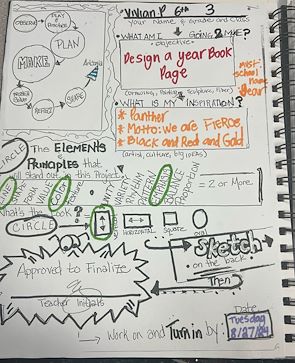 Valian P. 6th 3
Your Name & Grade and Class
OBSERVE
PLAY
PRACTICE
PLAN
MAKE
SHARE
REFLECT
WHAT AM I GOING 2 MAKE?
objective
Design a year Book
Page
must-
school
name
year
(Drawing, Painting, Sculpture, Fiber)
WHAT IS MY INSPIRATION?
* Panther
* Motto: we are FIERCE
* Black and Red and Gold
(artist, culture, big ideas)
CIRCLE The ELEMENTS
PRINCIPLES that
will stand out in this Project
LINE
FORM
VALUE
COLOR
VARIETY
RHYTHM
PATTERN
BALANCE
Proportion
= 2 or More
What's the look?
CIRCLE
HORIZONTAL
SQUARE
Oval
Sketch
on the back
Then
Approved to Finalize
Teacher Initials
Work on and Turn in by:
Date
Tuesday
8/27/24